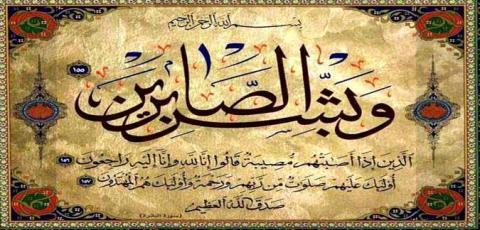 بسم الله الرحمن الرحيم
وَبَشِّرِ الصَّابِرِينَ ١٥٥
الَّذِينَ إِذَا أَصَابَتْهُم مُّصِيبَةٌ قَالُوا إِنَّا لِلَّهِ وَإِنَّا إِلَيْهِ رَاجِعُونَ ١٥٦
أُولَٰئِكَ عَلَيْهِمْ صَلَوَاتٌ مِّن رَّبِّهِمْ وَرَحْمَةٌ وَأُولَٰئِكَ هُمُ الْمُهْتَدُونَ ١٥٧
صدق الله العظيم
(سورة البقرة)